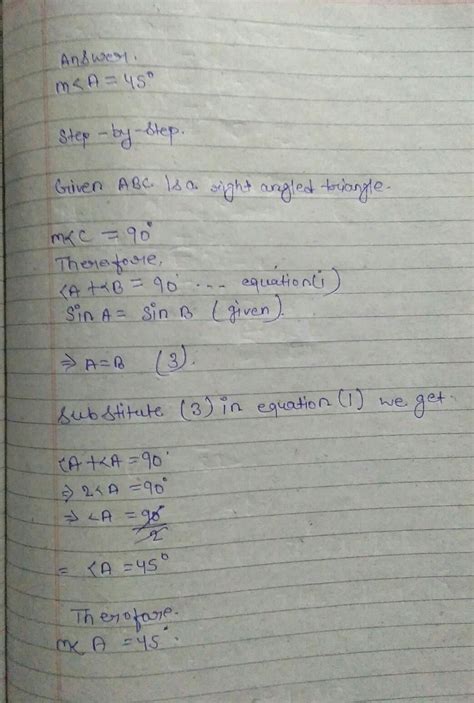 Answer.
m∠A = 45°
Step-by-step.
Given ABC is a right angled triangle.
m∠C = 90°
Therefore,
∠A + ∠B = 90° ... equation(1)
Sin A = Sin B (given).
⇒ A = B (3).
Substitute (3) in equation (1) we get.
∠A + ∠A = 90°
⇒ 2∠A = 90°
⇒ ∠A = 90°/2
= ∠A = 45°
Therofare.
m∠A = 45°.